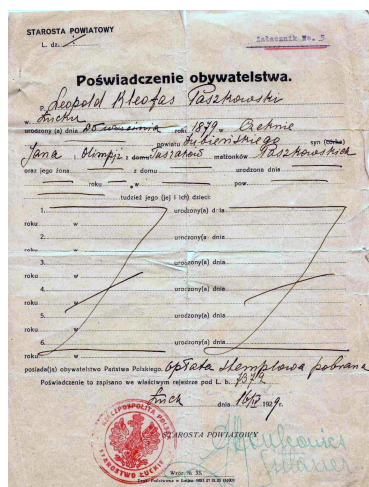 STAROSTA POWIATOWY
L. dz.
Załącznik No. 5
Poświadczenie obywatelstwa.
P. Leopold Kleofas Paszkowski
w Łucku
urodzony(a) dnia 25 września roku 1879 w Czeknie
powiatu Dubieńskiego syn (córka)
Jana i Olimpji z domu małżonków Paszkowskich
oraz jego żona z domu urodzona dnia
roku w pow.
tudzież jego (jej i ich) dzieci:
1. urodzony(a) dnia
roku w
2. urodzony(a) dnia
roku w
3. urodzony(a) dnia
roku w
4. urodzony(a) dnia
roku w
5. urodzony(a) dnia
roku w
6. urodzony(a) dnia
roku w
posiada(ją) obywatelstwo Państwa Polskiego. opłata stemplowa pobrana
Poświadczenie to zapisano we właściwym rejestrze pod L. b. 7379
Łuck dnia 16/IV 1929 r.
STAROSTA POWIATOWY
RZECZPOSPOLITA POLSKA
STAROSTWO ŁUCKIE
Wzór № 33.